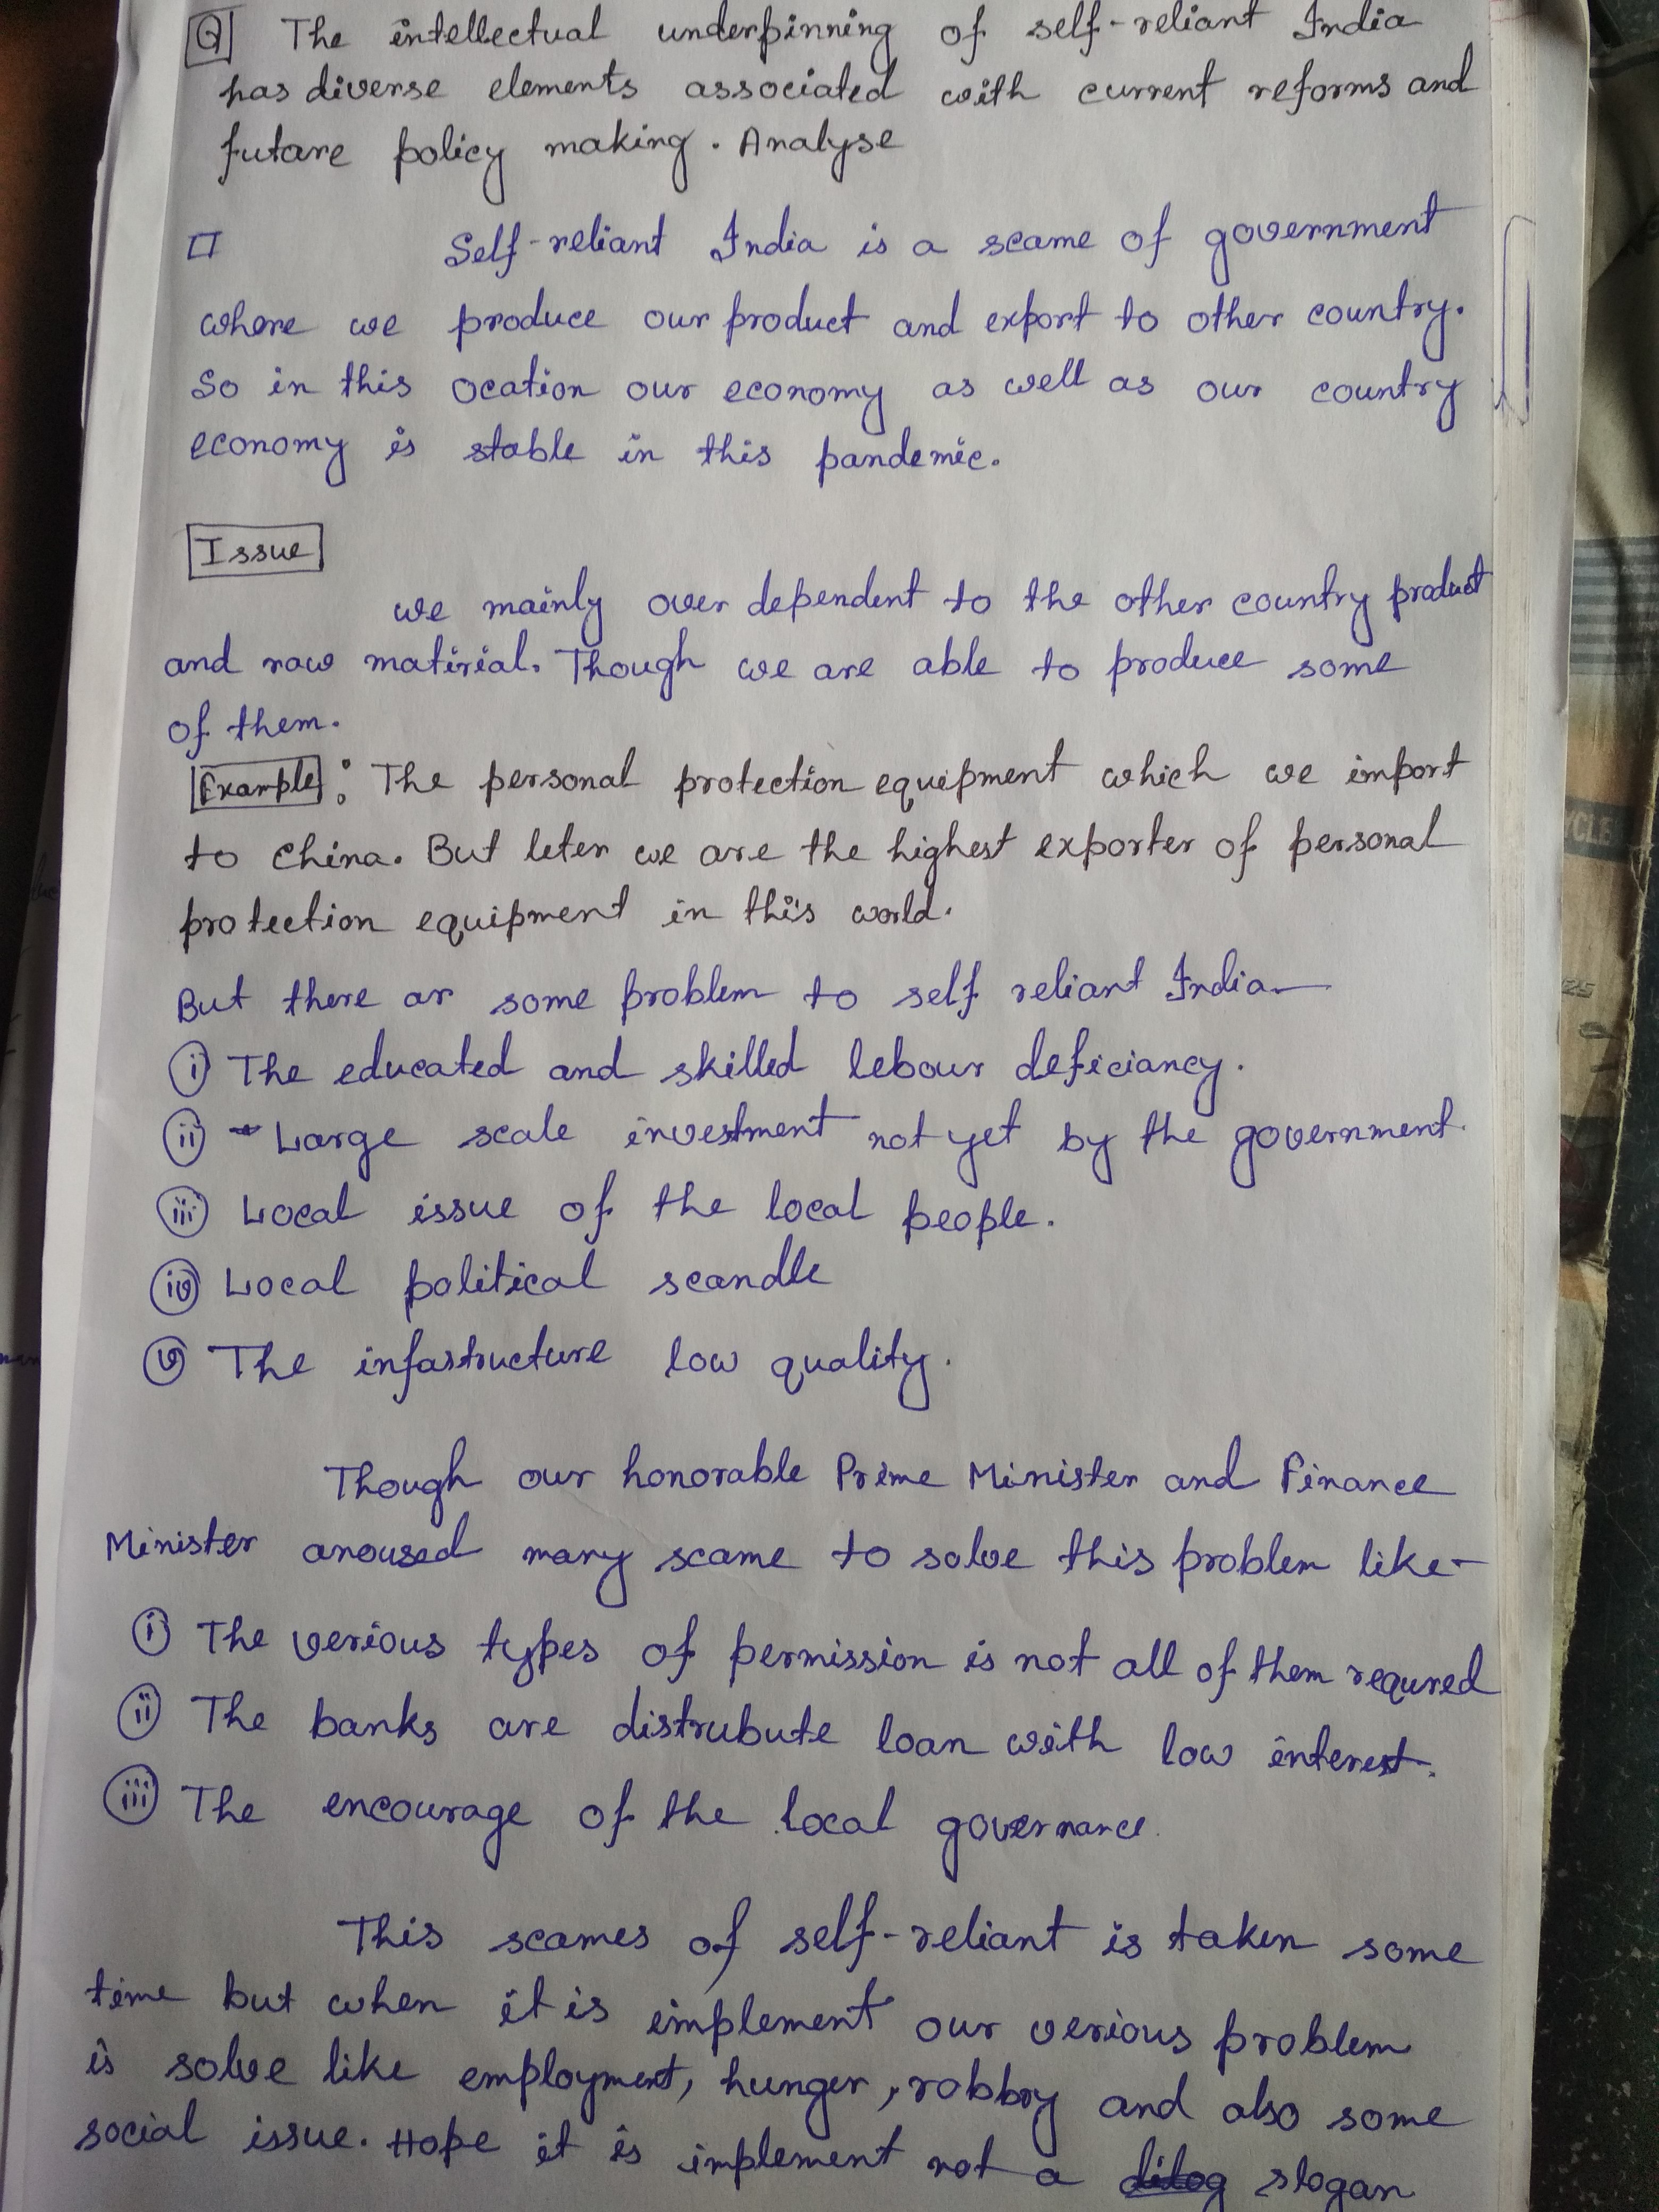 Q The intellectual underpinning of self-reliant India
has diverse elements associated with current reforms and
future policy making. Analyse
Self-reliant India is a scame of government
where we produce our product and export to other country.
So in this ocation our economy as well as our country
economy is stable in this pandemic.
Issue
we mainly over dependent to the other country product
and raw matirial. Though we are able to produce some
of them.
Example: The personal protection equipment which we import
to China. But leter we are the highest exporter of personal
protection equipment in this world.
But there ar some problem to self reliant India—
i The educated and skilled lebour deficiancy.
ii Large scale investment not yet by the government.
iii Local issue of the local people.
iv Local political scandle
v The infastructure low quality.
Though our honorable Prime Minister and Finance
Minister anoused many scame to solve this problem like-
i The verious types of permission is not all of them requred
ii The banks are distrubute loan with low interest.
iii The encourage of the local governance.
This scames of self-reliant is taken some
time but when it is implement our verious problem
is solve like employment, hunger, robbry and also some
social issue. Hope it is implement not a slogan
CYCLE